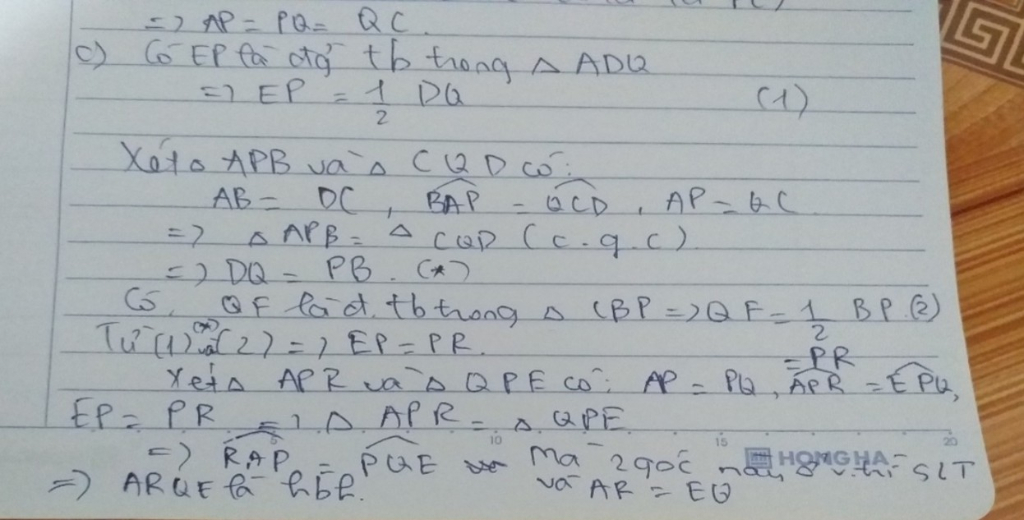 => AP = PQ = QC.
c) Có EP là đtb trong △ ADQ
=> EP = 1/2 DQ (1)
Xét △ APB và △ CQD có:
AB = DC, BAP = QCD, AP = QC
=> △ APB = △ CQD (c.g.c)
=> DQ = PB. (*)
Có QF là đ.tb trong △ CBP => QF = 1/2 BP (2)
= PR
Từ (1)(*) và (2) => EP = PR.
Xét △ APR và △ QPE có: AP = PQ, APR = EPQ,
EP = PR => △ APR = △ QPE
5 10 15 20
=> RAP = PQE Mà 2 góc này ở v.trí SLT
HONG HA
=> ARQE là hbh. và AR = EQ